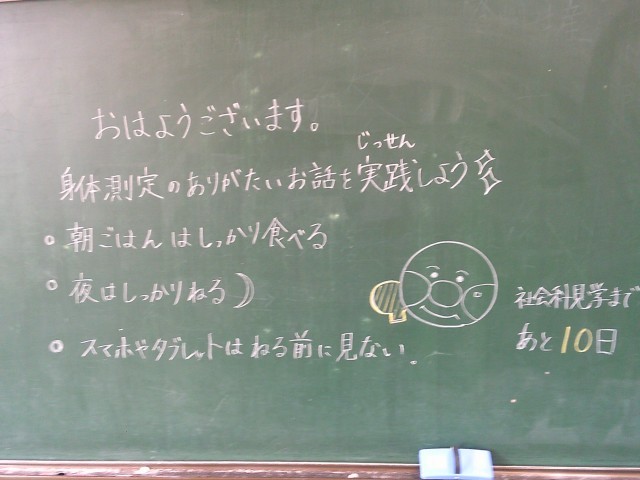 おはようございます。
じっせん
身体測定のありがたいお話を実践しよう
朝ごはんはしっかり食べる
夜はしっかりねる
スマホやタブレットはねる前に見ない.
社会科見学まで
あと10日